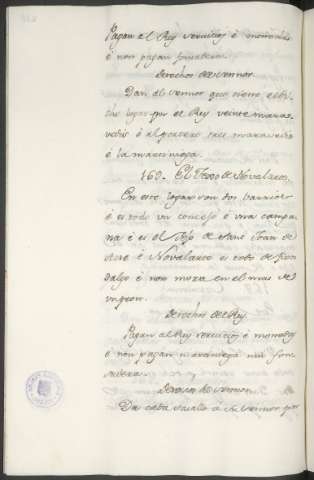 Pagan al Rey servicios é monedas
é non pagan fonsadera.
derechos del sennor.
Dan al sennor que tiene este di-
cho logar por el Rey veinte marav-
vedis é al portero tres maravedis
é la martiniega.
160. El Tovo de Novalares.
En este logar son dos barrios
é es todo un concejo é una campa-
na é es el Tojo de Sant Joan de
é Novalares es todo de fijos
dalgo é non mora en él mas de
un peon.
derechos del Rey.
Pagan al Rey servicios é monedas
é non pagan martiniega nin fon-
sadera.
derechos del sennor.
Da cada vasallo á su sennor por